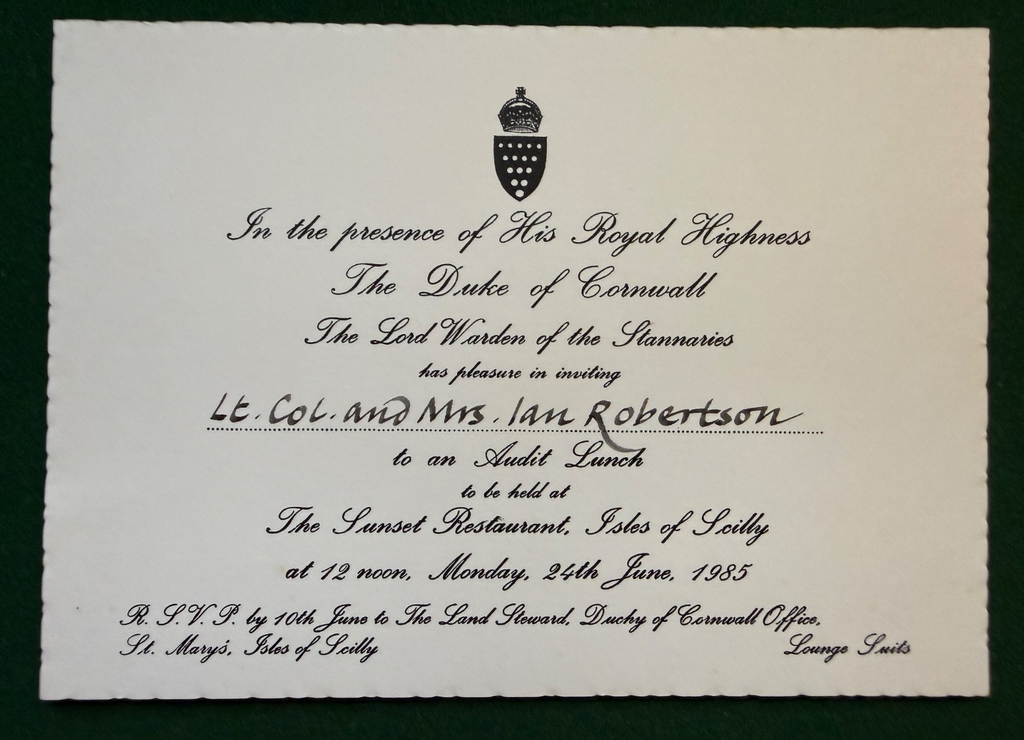 In the presence of His Royal Highness
The Duke of Cornwall
The Lord Warden of the Stannaries
has pleasure in inviting
Lt. Col. and Mrs. Ian Robertson
to an Audit Lunch
to be held at
The Sunset Restaurant, Isles of Scilly
at 12 noon, Monday, 24th June, 1985
R. S. V. P. by 10th June to The Land Steward, Duchy of Cornwall Office,
St. Mary's, Isles of Scilly
Lounge Suits